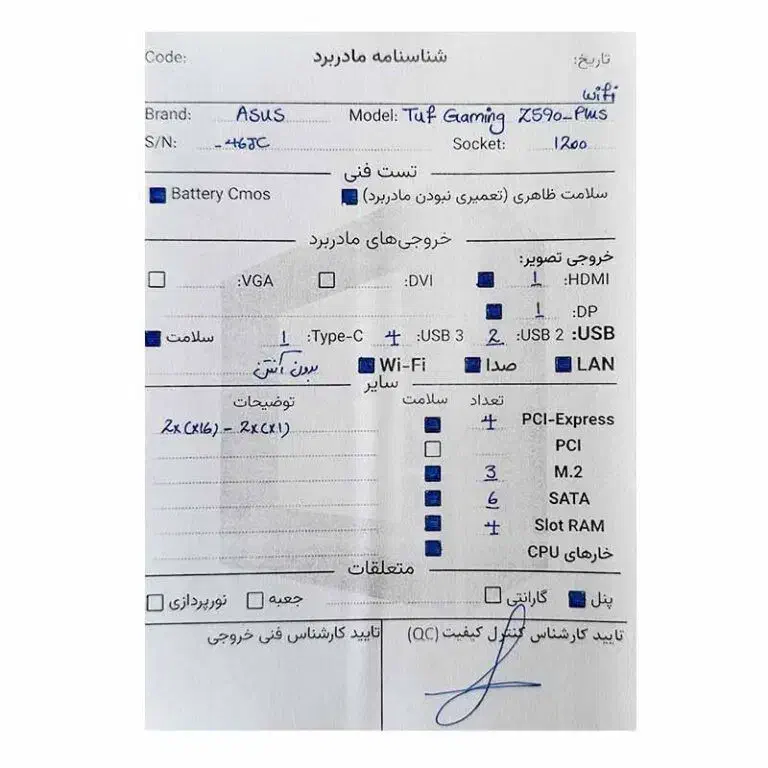 تاریخ: شناسنامه مادربرد Code:
wifi
Brand: ASUS Model: Tuf Gaming Z590-Plus
S/N: -46JC Socket: 1200
تست فنی
سلامت ظاهری (تعمیری نبودن مادربرد) Battery Cmos
خروجی‌های مادربرد
خروجی تصویر:
HDMI: 1 DVI: VGA:
DP: 1
USB: USB 2: 2 USB 3: 4 Type-C: 1 سلامت
LAN صدا Wi-Fi بدون آنتن
سایر
تعداد سلامت توضیحات
PCI-Express 4 2x(x16) - 2x(x1)
PCI
M.2 3
SATA 6
Slot RAM 4
خارهای CPU
متعلقات
پنل گارانتی جعبه نورپردازی
تایید کارشناس کنترل کیفیت (QC) تایید کارشناس فنی خروجی